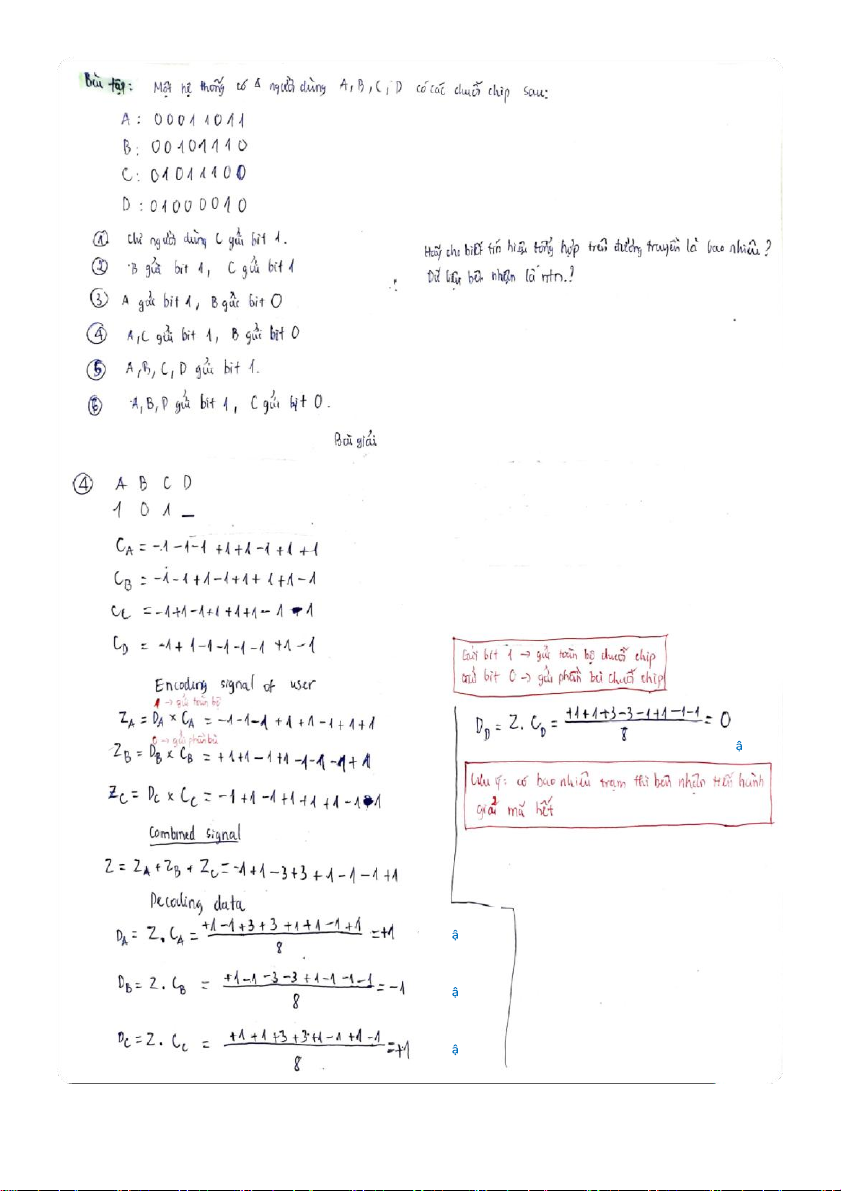 Bài tập: Một hệ thống có 4 người dùng A, B, C, D có các chuỗi chip sau:
A: 00011011
B: 00101110
C: 01011100
D: 01000010
① Chỉ người dùng C gửi bit 1.
② B gửi bit 1, C gửi bit 1
③ A gửi bit 1, B gửi bit 0
④ A, C gửi bit 1, B gửi bit 0
⑤ A, B, C, D gửi bit 1.
⑥ A, B, D gửi bit 1, C gửi bit 0.
Hãy cho biết tín hiệu tổng hợp trên đường truyền là bao nhiêu?
Dữ liệu bên nhận là ntn?
Bài giải
④ A B C D
1 0 1 _
C_A = -1-1-1+1+1-1+1+1
C_B = -1-1+1-1+1+1+1-1
C_C = -1+1-1+1+1+1-1-1
C_D = -1+1-1-1-1-1+1-1
Encoding signal of user
1 → gửi toàn bộ
Z_A = D_A × C_A = -1-1-1+1+1-1+1+1
0 → gửi phần bù
Z_B = D_B × C_B = +1+1-1+1-1-1-1+1
Z_C = D_C × C_C = -1+1-1+1+1+1-1-1
Combined signal
Z = Z_A + Z_B + Z_C = -1+1-3+3+1-1-1+1
Decoding data
D_A = Z. C_A = +1-1+3+3+1+1-1+1 / 8 = +1
ậ
D_B = Z. C_B = +1-1-3-3+1-1-1-1 / 8 = -1
ậ
D_C = Z. C_C = +1+1+3+3+1-1+1-1 / 8 = +1
ậ
Gửi bit 1 → gửi toàn bộ chuỗi chip
Gửi bit 0 → gửi phần bù chuỗi chip
D_D = Z. C_D = +1+1+3-3-1+1-1-1 / 8 = 0
ậ
Lưu ý: có bao nhiêu trạm thì bên nhận tiến hành
giải mã hết